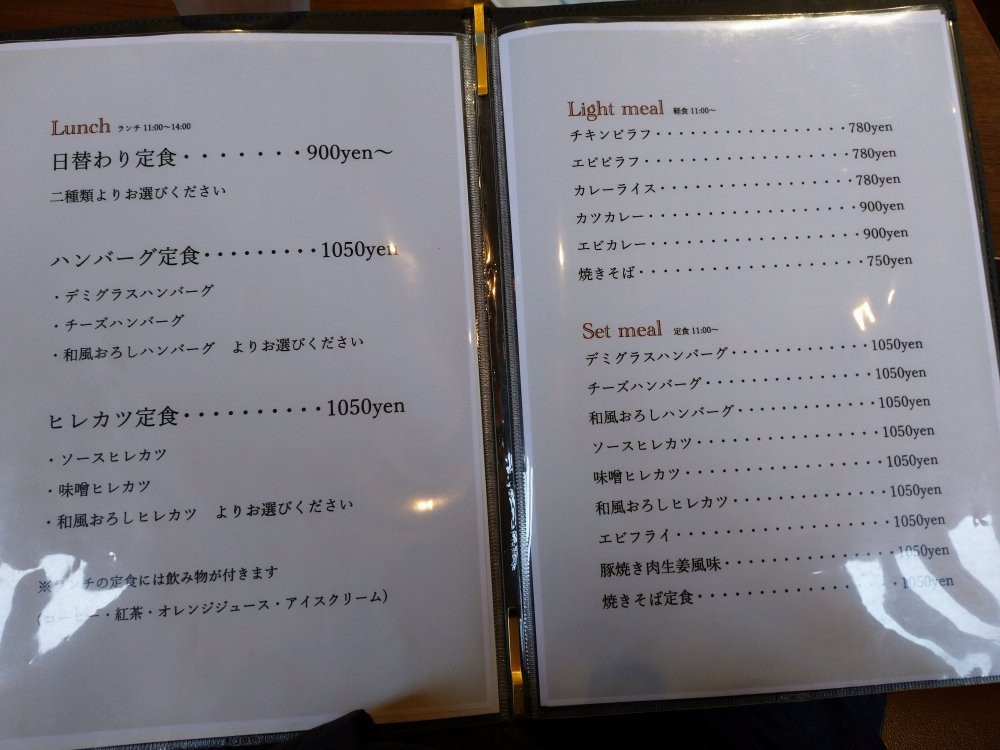 Lunch ランチ 11:00～14:00
日替わり定食・・・・・・・900yen～
二種類よりお選びください
ハンバーグ定食・・・・・・・・・1050yen
・デミグラスハンバーグ
・チーズハンバーグ
・和風おろしハンバーグ　よりお選びください
ヒレカツ定食・・・・・・・・・・1050yen
・ソースヒレカツ
・味噌ヒレカツ
・和風おろしヒレカツ　よりお選びください
※ランチの定食には飲み物が付きます
(コーヒー・紅茶・オレンジジュース・アイスクリーム)
Light meal 軽食 11:00～
チキンピラフ・・・・・・・・・・・・・・・・780yen
エビピラフ・・・・・・・・・・・・・・・・・780yen
カレーライス・・・・・・・・・・・・・・・・780yen
カツカレー・・・・・・・・・・・・・・・・・900yen
エビカレー・・・・・・・・・・・・・・・・・900yen
焼きそば・・・・・・・・・・・・・・・・・・750yen
Set meal 定食 11:00～
デミグラスハンバーグ・・・・・・・・・・・1050yen
チーズハンバーグ・・・・・・・・・・・・・1050yen
和風おろしハンバーグ・・・・・・・・・・・1050yen
ソースヒレカツ・・・・・・・・・・・・・・1050yen
味噌ヒレカツ・・・・・・・・・・・・・・・1050yen
和風おろしヒレカツ・・・・・・・・・・・・1050yen
エビフライ・・・・・・・・・・・・・・・・1050yen
豚焼き肉生姜風味・・・・・・・・・・・・・1050yen
焼きそば定食・・・・・・・・・・・・・・・1050yen